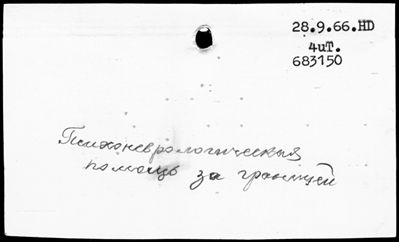 28.9.66.HD
4иТ.
683150
Психоневрологическая
помощь за границей